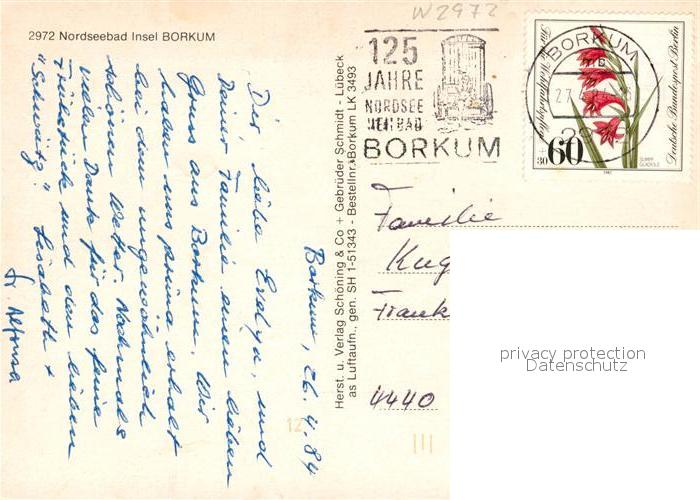 W2972
2972 Nordseebad Insel BORKUM
Borkum, 26.4.84
Dir, liebe Evelyn, und
Deiner Familie einen lieben
Gruss aus Borkum. Wir
haben uns prima erholt
bei dem ungewöhnlich
schönen Wetter. Nochmals
vielen Dank für das feine
Frühstück und den lieben
"Schwatz"! Lisabeth +
Sr. Alfonsa
Herst. u. Verlag Schöning & Co + Gebrüder Schmidt - Lübeck
as Luftaufn., gen. SH 1-51343 - Bestellnr. Borkum LK 3493
125
JAHRE
NORDSEE
HEILBAD
BORKUM
BORKUM
mc
2972
Für die Wohlfahrtspflege
Deutsche Bundespost Berlin
60
+
30
1982
Familie
Kug
Frank
4440
privacy protection
Datenschutz
12